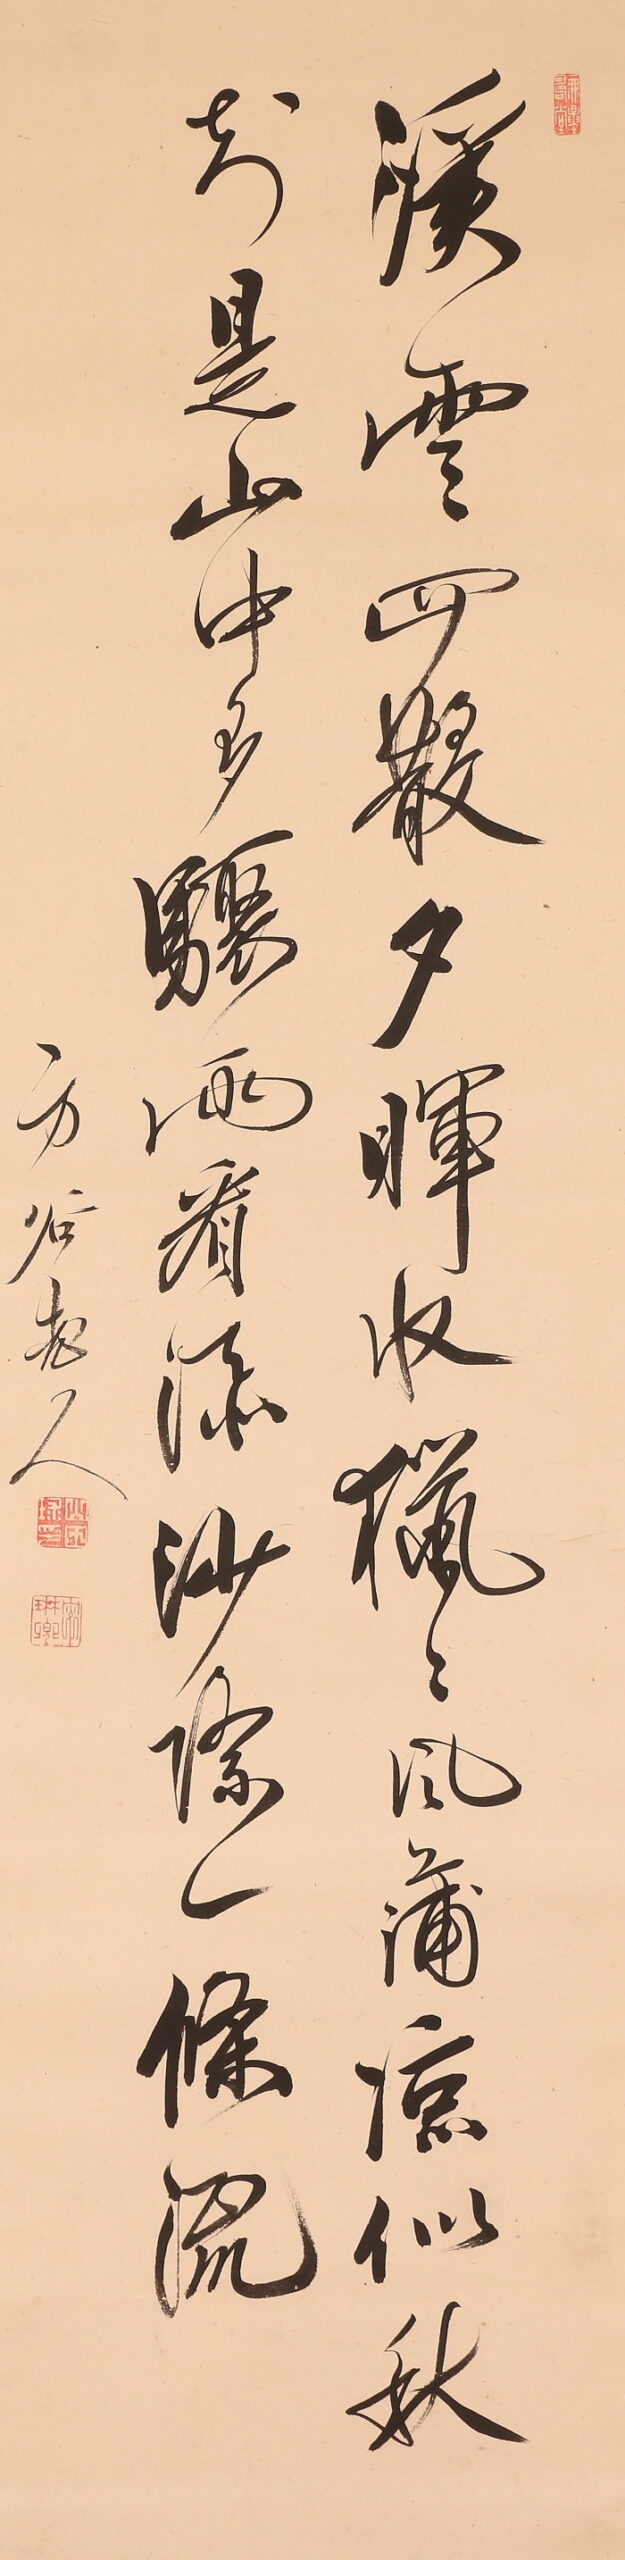 溪雲四散夕暉收獵〻風蒲涼似秋
知是山中多驟雨看添沙際一條流
方谷老人